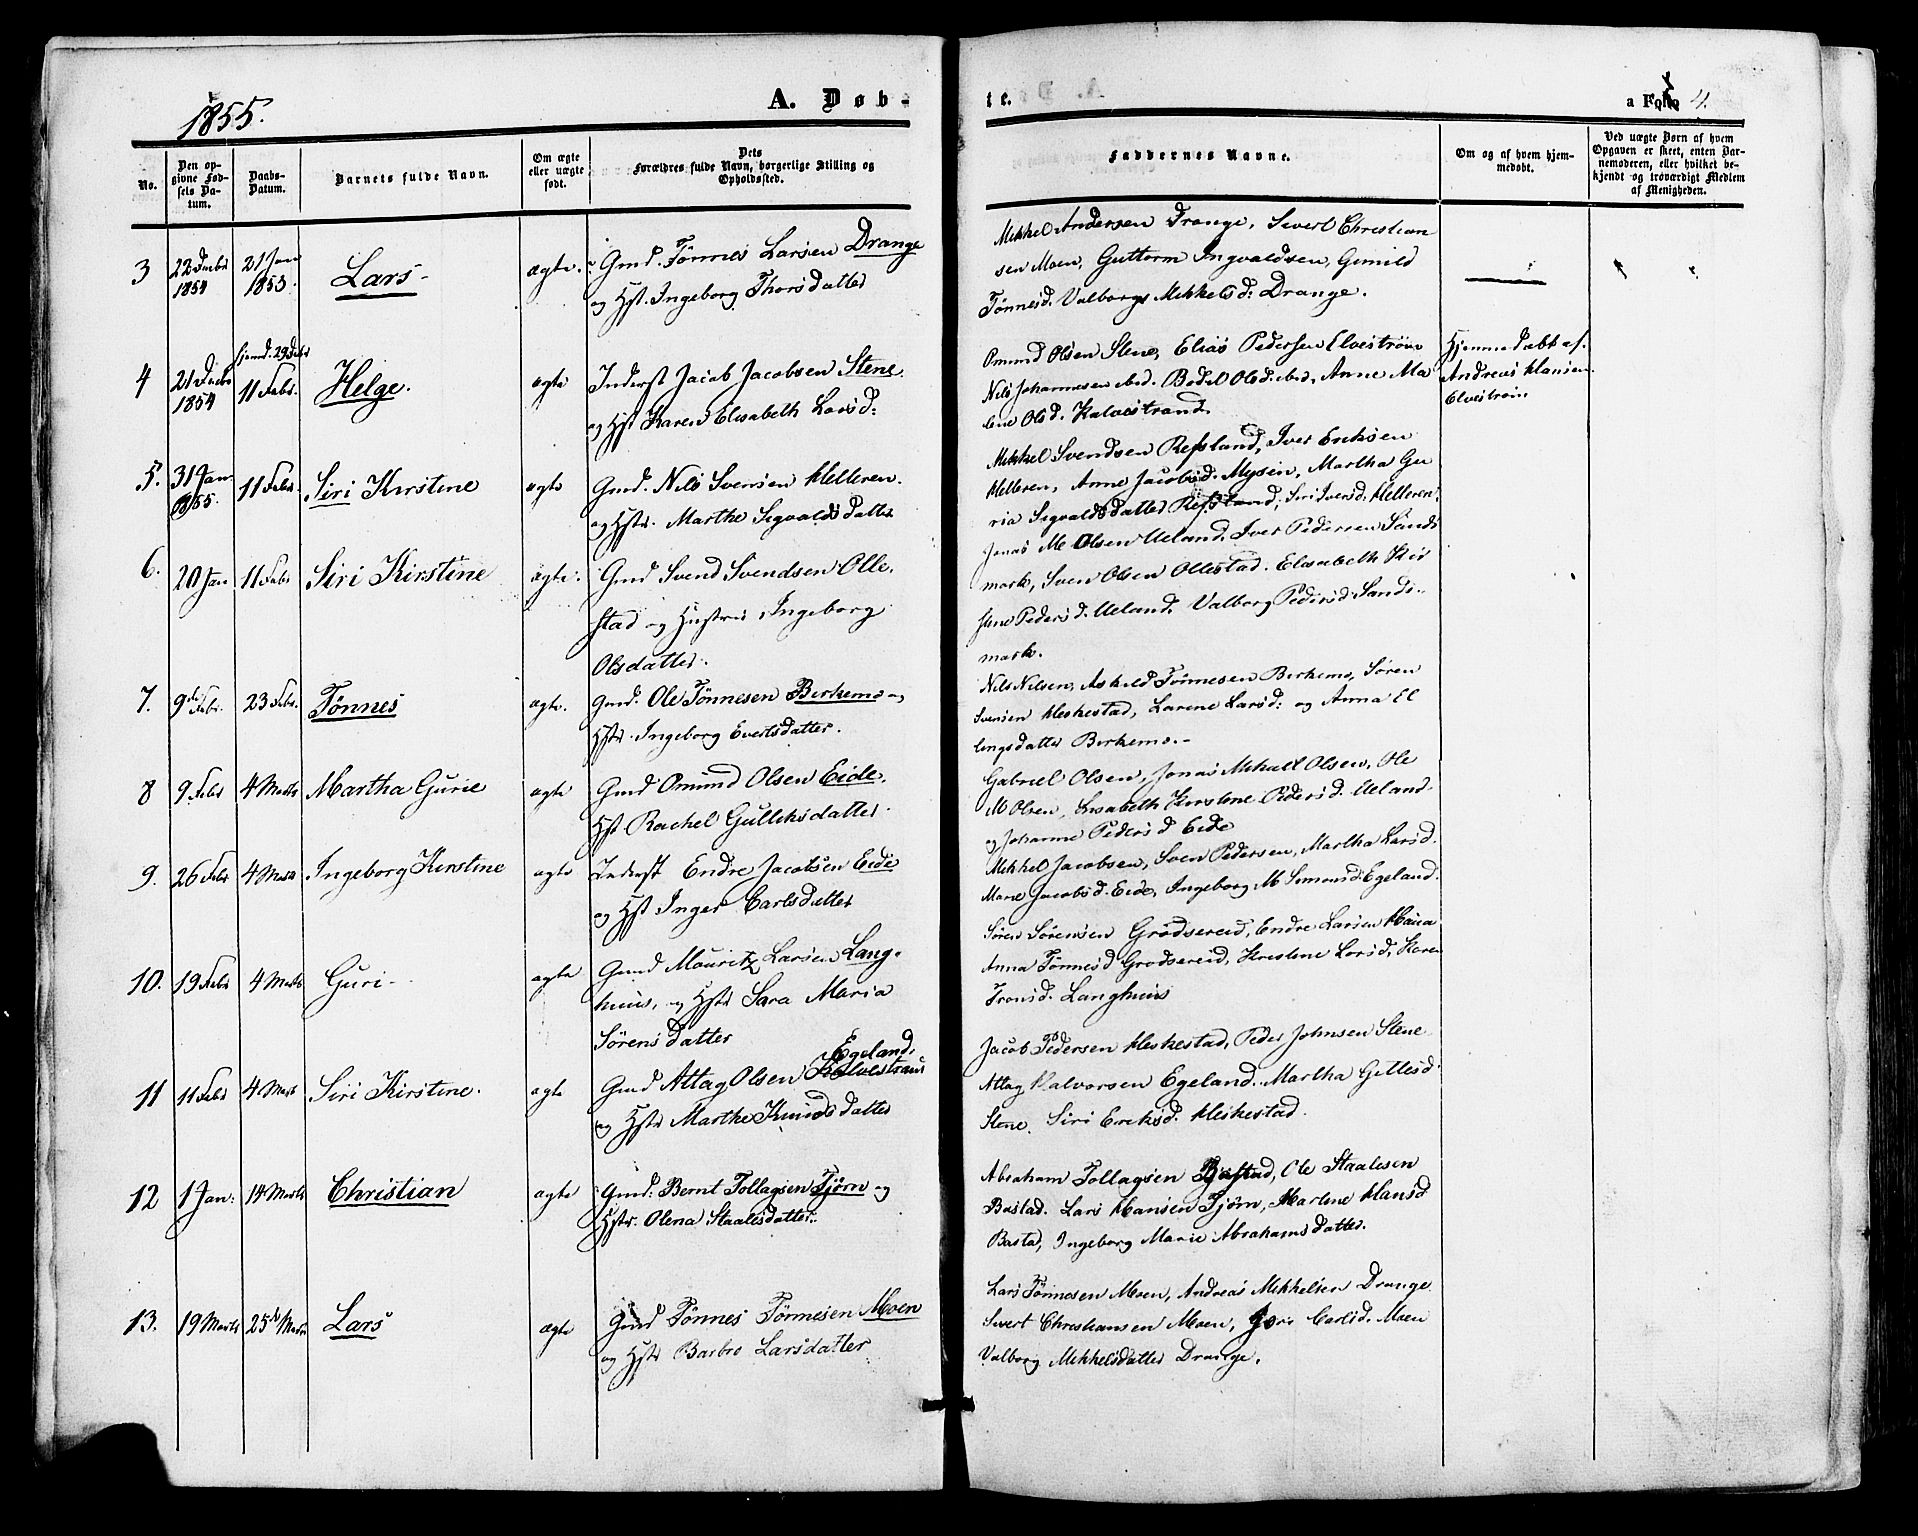 1855.
A. Døb-
te.
a Folio 4.
No.
Den opgivne Fødsels Datum.
Daabs-Datum.
Barnets fulde Navn.
Om ægte eller uægte født.
Dets Forældres fulde Navn, borgerlige Stilling og Opholdssted.
Faddernes Navne.
Om og af hvem hjemmedøbt.
Ved uægte Børn af hvem Opgaven er skeet, enten Barnemoderen, eller hvilket bekjendt og troværdigt Medlem af Menigheden.
3 22 Decbr 1854 21 Jan 1855 Lars ægte. Gmd. Tønnes Larsen Drange
og Hst. Ingeborg Thorsdatter
Mikkel Andersen Drange, Sivert Christian
sen Moen, Guttorm Ingvaldsen, Gunild
Tønnesd. Valborg Mikkelsd: Drange.
4 21 Decbr 1854 hjemd. 29 Decbr 11 Febr. Helge. ægte Inderst Jacob Jacobsen Stene
og Hst Karen Elisabeth Larsd:
Omund Olsen Stene, Elias Pedersen Elvestrøm
Nils Johannesen ibid. Bodel Olsd. ibid, Anne Ma
lene Olsd. Kalvestrand.
Hjemmedøbt af
Andreas Hansen
Elvestrøm.
5. 31 Jan 1855. 11 Febr. Siri Kirstine ægte Gmd. Nils Svensen Helleren
og Hstr. Marthe Sigvaldsdatter
Mikkel Svendsen Refsland, Iver Eriksen
Helleren, Anne Jacobsd. Mysen, Martha Gu
ria Sigvaldsdatter Refsland, Siri Iversd. Helleren
6. 20 Jan 11 Febr Siri Kirstine ægte. Gmd Svend Svendsen Olle
stad og Hustru Ingeborg
Olsdatter.
Jonas M Olsen Ueland. Iver Pedersen Sands
mark, Sven Olsen Ollestad. Elisabeth Kir
stine Pedersd. Ueland. Valborg Pedersd. Sands
mark.
7. 9de Febr. 23 Febr. Tønnes ægte. Gmd. Ole Tønnesen Birkemo og
Hstr. Ingeborg Evertsdatter.
Nils Nilsen, Askild Tønnesen Birkemo, Søren
Svensen Heskestad, Larene Larsd: og Anna El
lingsdatter Birkemo.
8 9 Febr 4 Marts Martha Gurie ægte Gmd Omund Olsen Eide
Hst Rachel Gulleksdatter.
Gabriel Olsen, Jonas Mikall Olsen, Ole
M Olsen, Lisabeth Kirstine Pedersd. Ueland
og Johanne Pedersd Eide
9. 26 Febr 4 Marts Ingeborg Kirstine ægte Inderst Endre Jacobsen Eide
og Hst Inger Carlsdatter
Mikkel Jacobsen, Sven Pedersen, Martha Larsd.
Marie Jacobsd. Eide, Ingeborg M Simonsd. Egeland.
10. 19 Febr 4 Marts Guri ægte Gmd Mouritz Larsen Lang-
huus, og Hstr Sara Maria
Sørensdatter
Søren Sørensen Grødsereid, Endre Larsen
Anna Tønnesd Grødsereid, Kirstene Larsd, Karen
Tronsd. Langhuus
11 11 Febr 4 Marts Siri Kirstine. ægte Gmd Attag Olsen Kalvestrand Egeland,
og Hstr Marthe Knudsdatter
Jacob Pedersen Heskestad, Peder Johnsen Stene
Attag Halvorsen Egeland. Martha Gittlesd.
Stene. Siri Eriksd. Heskestad.
12 1 Jan: 14 Marts Christian ægte Gmd: Bernt Tollagsen Tjørn og
Hstr. Olena Staalesdatter.
Abraham Tollagsen, Ole Staalesen
Bastad. Lars Hansen Tjørn, Marlene Hansd
Bastad, Ingeborg Marie Abrahamsdatter.
13. 19 Marts 25de Marts Lars ægte Gmd Tønnes Tønnesen Moen
og Hstr Barbro Larsdatter
Lars Tønnesen Moen, Andreas Mikkelsen Drange
Sivert Christiansen Moen, Carlsd. Moen
Valborg Mikkelsdatter Drange.